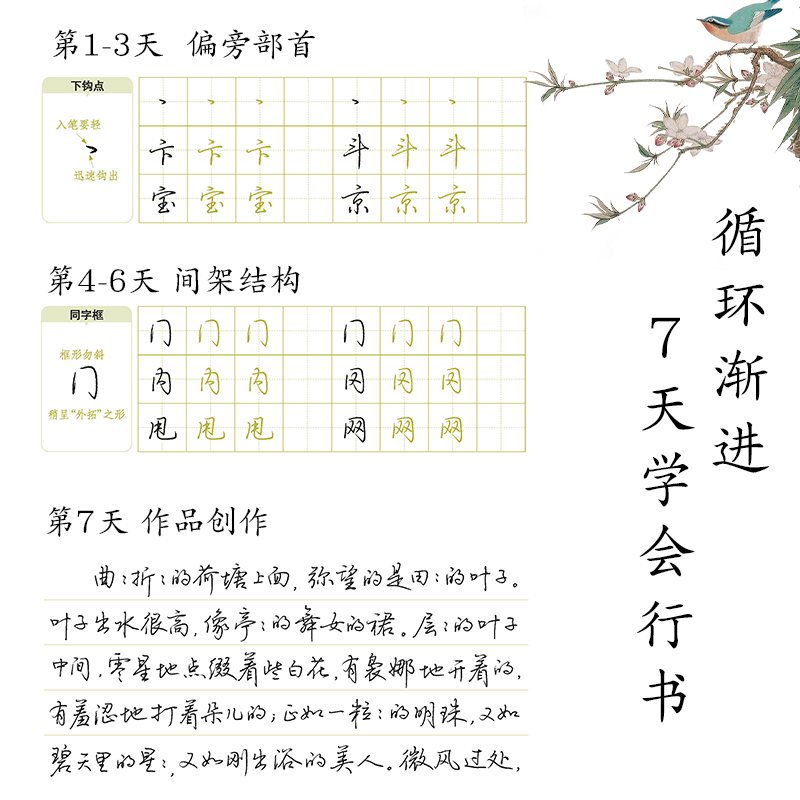 第1-3天 偏旁部首
下钩点
入笔要轻
迅速钩出
丶 丶 丶 丶 丶 丶
卞 卞 卞 斗 斗 斗
宝 宝 宝 京 京 京
第4-6天 间架结构
同字框
框形勿斜
冂
稍呈“外拓”之形
冂 冂 冂 冂 冂 冂
内 内 内 冈 冈 冈
甩 甩 甩 网 网 网
第7天 作品创作
曲:折:的荷塘上面,弥望的是田:的叶子。
叶子出水很高,像亭:的舞女的裙。层:的叶子
中间,零星地点缀着些白花,有袅娜地开着的,
有羞涩地打着朵儿的;正如一粒:的明珠,又如
碧天里的星:,又如刚出浴的美人。微风过处,
循环渐进
7天学会行书